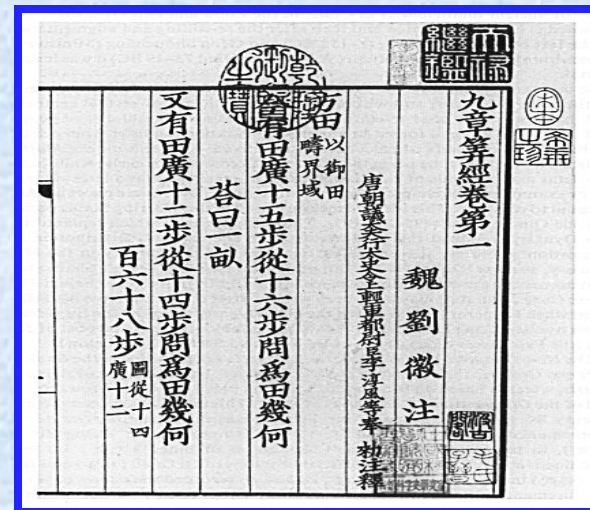 九章筭經卷第一
魏劉徽注
唐朝議大夫行太史令上輕車都尉臣李淳風等奉 勑注釋
方田以御田疇界域
今有田廣十五步從十六步問爲田幾何
荅曰一畝
又有田廣十二步從十四步問爲田幾何
百六十八步圖從十四廣十二
天祿繼鑑
乾隆御覽之寶